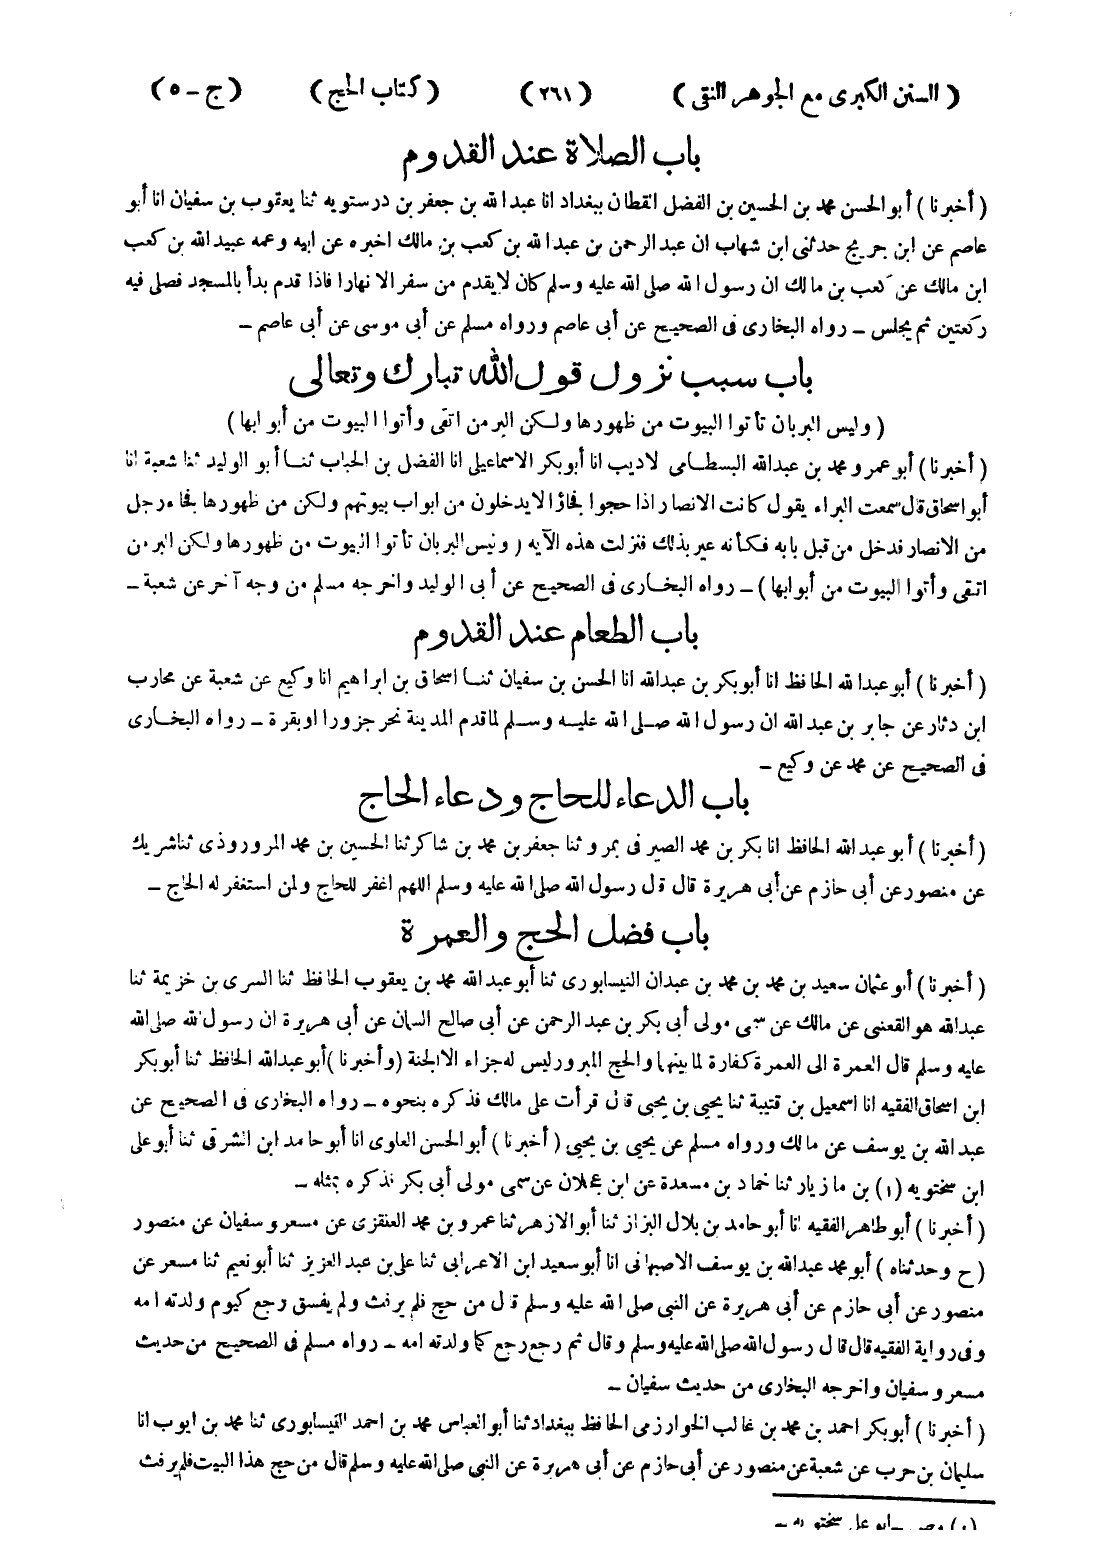 ( السنن الكبرى مع الجوهر النقى ) ( ٢٦١ ) ( كتاب الحج ) ( ج - ٥ )
باب الصلاة عند القدوم
( أخبرنا ) أبو الحسن محمد بن الحسين بن الفضل القطان ببغداد انا عبد الله بن جعفر بن درستويه ثنا يعقوب بن سفيان انا أبو
عاصم عن ابن جريج حدثنى ابن شهاب ان عبد الرحمن بن عبد الله بن كعب بن مالك اخبره عن ابيه وعمه عبيد الله بن كعب
ابن مالك عن كعب بن مالك ان رسول الله صلى الله عليه وسلم كان لا يقدم من سفر الا نهارا فاذا قدم بدأ بالمسجد فصلى فيه
ركعتين ثم يجلس - رواه البخارى فى الصحيح عن أبى عاصم ورواه مسلم عن أبى موسى عن أبى عاصم -
باب سبب نزول قول الله تبارك وتعالى
( وليس البر بان تأتوا البيوت من ظهورها ولكن البر من اتقى وأتوا البيوت من أبوابها )
( أخبرنا ) أبو عمرو محمد بن عبد الله البسطامى لاديب انا أبو بكر الاسماعيلى انا الفضل بن الحباب ثنا أبو الوليد ثنا شعبة انا
أبو اسحاق قال سمعت البراء يقول كانت الانصار اذا حجوا فجاؤا لا يدخلون من ابواب بيوتهم ولكن من ظهورها فجاء رجل
من الانصار فدخل من قبل بابه فكأنه عير بذلك فنزلت هذه الآيه ( وليس البر بان تأتوا البيوت من ظهورها ولكن البر من
اتقى وأتوا البيوت من أبوابها ) - رواه البخارى فى الصحيح عن أبى الوليد واخرجه مسلم من وجه آخر عن شعبة -
باب الطعام عند القدوم
( أخبرنا ) أبو عبد الله الحافظ انا أبو بكر بن عبد الله انا الحسن بن سفيان ثنا اسحاق بن ابراهيم انا وكيع عن شعبة عن محارب
ابن دثار عن جابر بن عبد الله ان رسول الله صلى الله عليه وسلم لما قدم المدينة نحر جزورا او بقرة - رواه البخارى
فى الصحيح عن محمد عن وكيع -
باب الدعاء للحاج ودعاء الحاج
( أخبرنا ) أبو عبد الله الحافظ انا بكر بن محمد الصيرفى بمرو ثنا جعفر بن محمد بن شاكر ثنا الحسين بن محمد المروروذى ثنا شريك
عن منصور عن أبى حازم عن أبى هريرة قال قال رسول الله صلى الله عليه وسلم اللهم اغفر للحاج ولمن استغفر له الحاج -
باب فضل الحج والعمرة
( أخبرنا ) أبو عثمان سعيد بن محمد بن محمد بن عبدان النيسابورى ثنا أبو عبد الله محمد بن يعقوب الحافظ ثنا السرى بن خزيمة ثنا
عبد الله هو القعنبى عن مالك عن سمى مولى أبى بكر بن عبد الرحمن عن أبى صالح السمان عن أبى هريرة ان رسول الله صلى الله
عليه وسلم قال العمرة الى العمرة كفارة لما بينهما والحج المبرور ليس له جزاء الا الجنة ( وأخبرنا ) أبو عبد الله الحافظ ثنا أبو بكر
ابن اسحاق الفقيه انا اسمعيل بن قتيبة ثنا يحيى بن يحيى قال قرأت على مالك فذكره بنحوه - رواه البخارى فى الصحيح عن
عبد الله بن يوسف عن مالك ورواه مسلم عن يحيى بن يحيى ( أخبرنا ) أبو الحسن العلوى انا أبو حامد ابن الشرقى ثنا أبو على
ابن سختويه (١) بن مازيار ثنا حماد بن مسعدة عن ابن عجلان عن سمى مولى أبى بكر فذكره بمثله -
( أخبرنا ) أبو طاهر الفقيه انا أبو حامد بن بلال البزاز ثنا أبو الازهر ثنا عمرو بن محمد العنقزى عن مسعر وسفيان عن منصور
( ح وحدثناه ) أبو محمد عبد الله بن يوسف الاصبهانى انا أبو سعيد ابن الاعرابى ثنا على بن عبد العزيز ثنا أبو نعيم ثنا مسعر عن
منصور عن أبى حازم عن أبى هريرة عن النبى صلى الله عليه وسلم قال من حج فلم يرفث ولم يفسق رجع كيوم ولدته امه
وفى رواية الفقيه قال قال رسول الله صلى الله عليه وسلم وقال ثم رجع رجع كما ولدته امه - رواه مسلم فى الصحيح من حديث
مسعر وسفيان واخرجه البخارى من حديث سفيان -
( أخبرنا ) أبو بكر احمد بن محمد بن غالب الخوارزمى الحافظ ببغداد ثنا أبو العباس محمد بن احمد النيسابورى ثنا محمد بن ايوب انا
سليمان بن حرب عن شعبة عن منصور عن أبى حازم عن أبى هريرة عن النبى صلى الله عليه وسلم قال من حج هذا البيت فلم يرفث
سختويه -